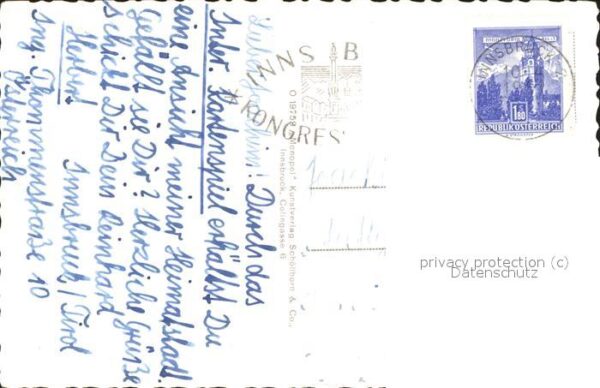 Durch das
Inter. Kartenspiel erhältst Du
eine Ansicht meiner Heimatstadt
Gefällt sie Dir? Herzliche Grüße
schickt Dir Dein Reinhard
Herbert
Innsbruck / Tirol
Ing. Thommenstraße 10
Österreich
INNSB
KONGRES
Kunstverlag Schöllhorn & Co.,
Innsbruck, Colingasse 6
INNSBRUCK
1.80
REPUBLIK ÖSTERREICH
privacy protection (c)
Datenschutz